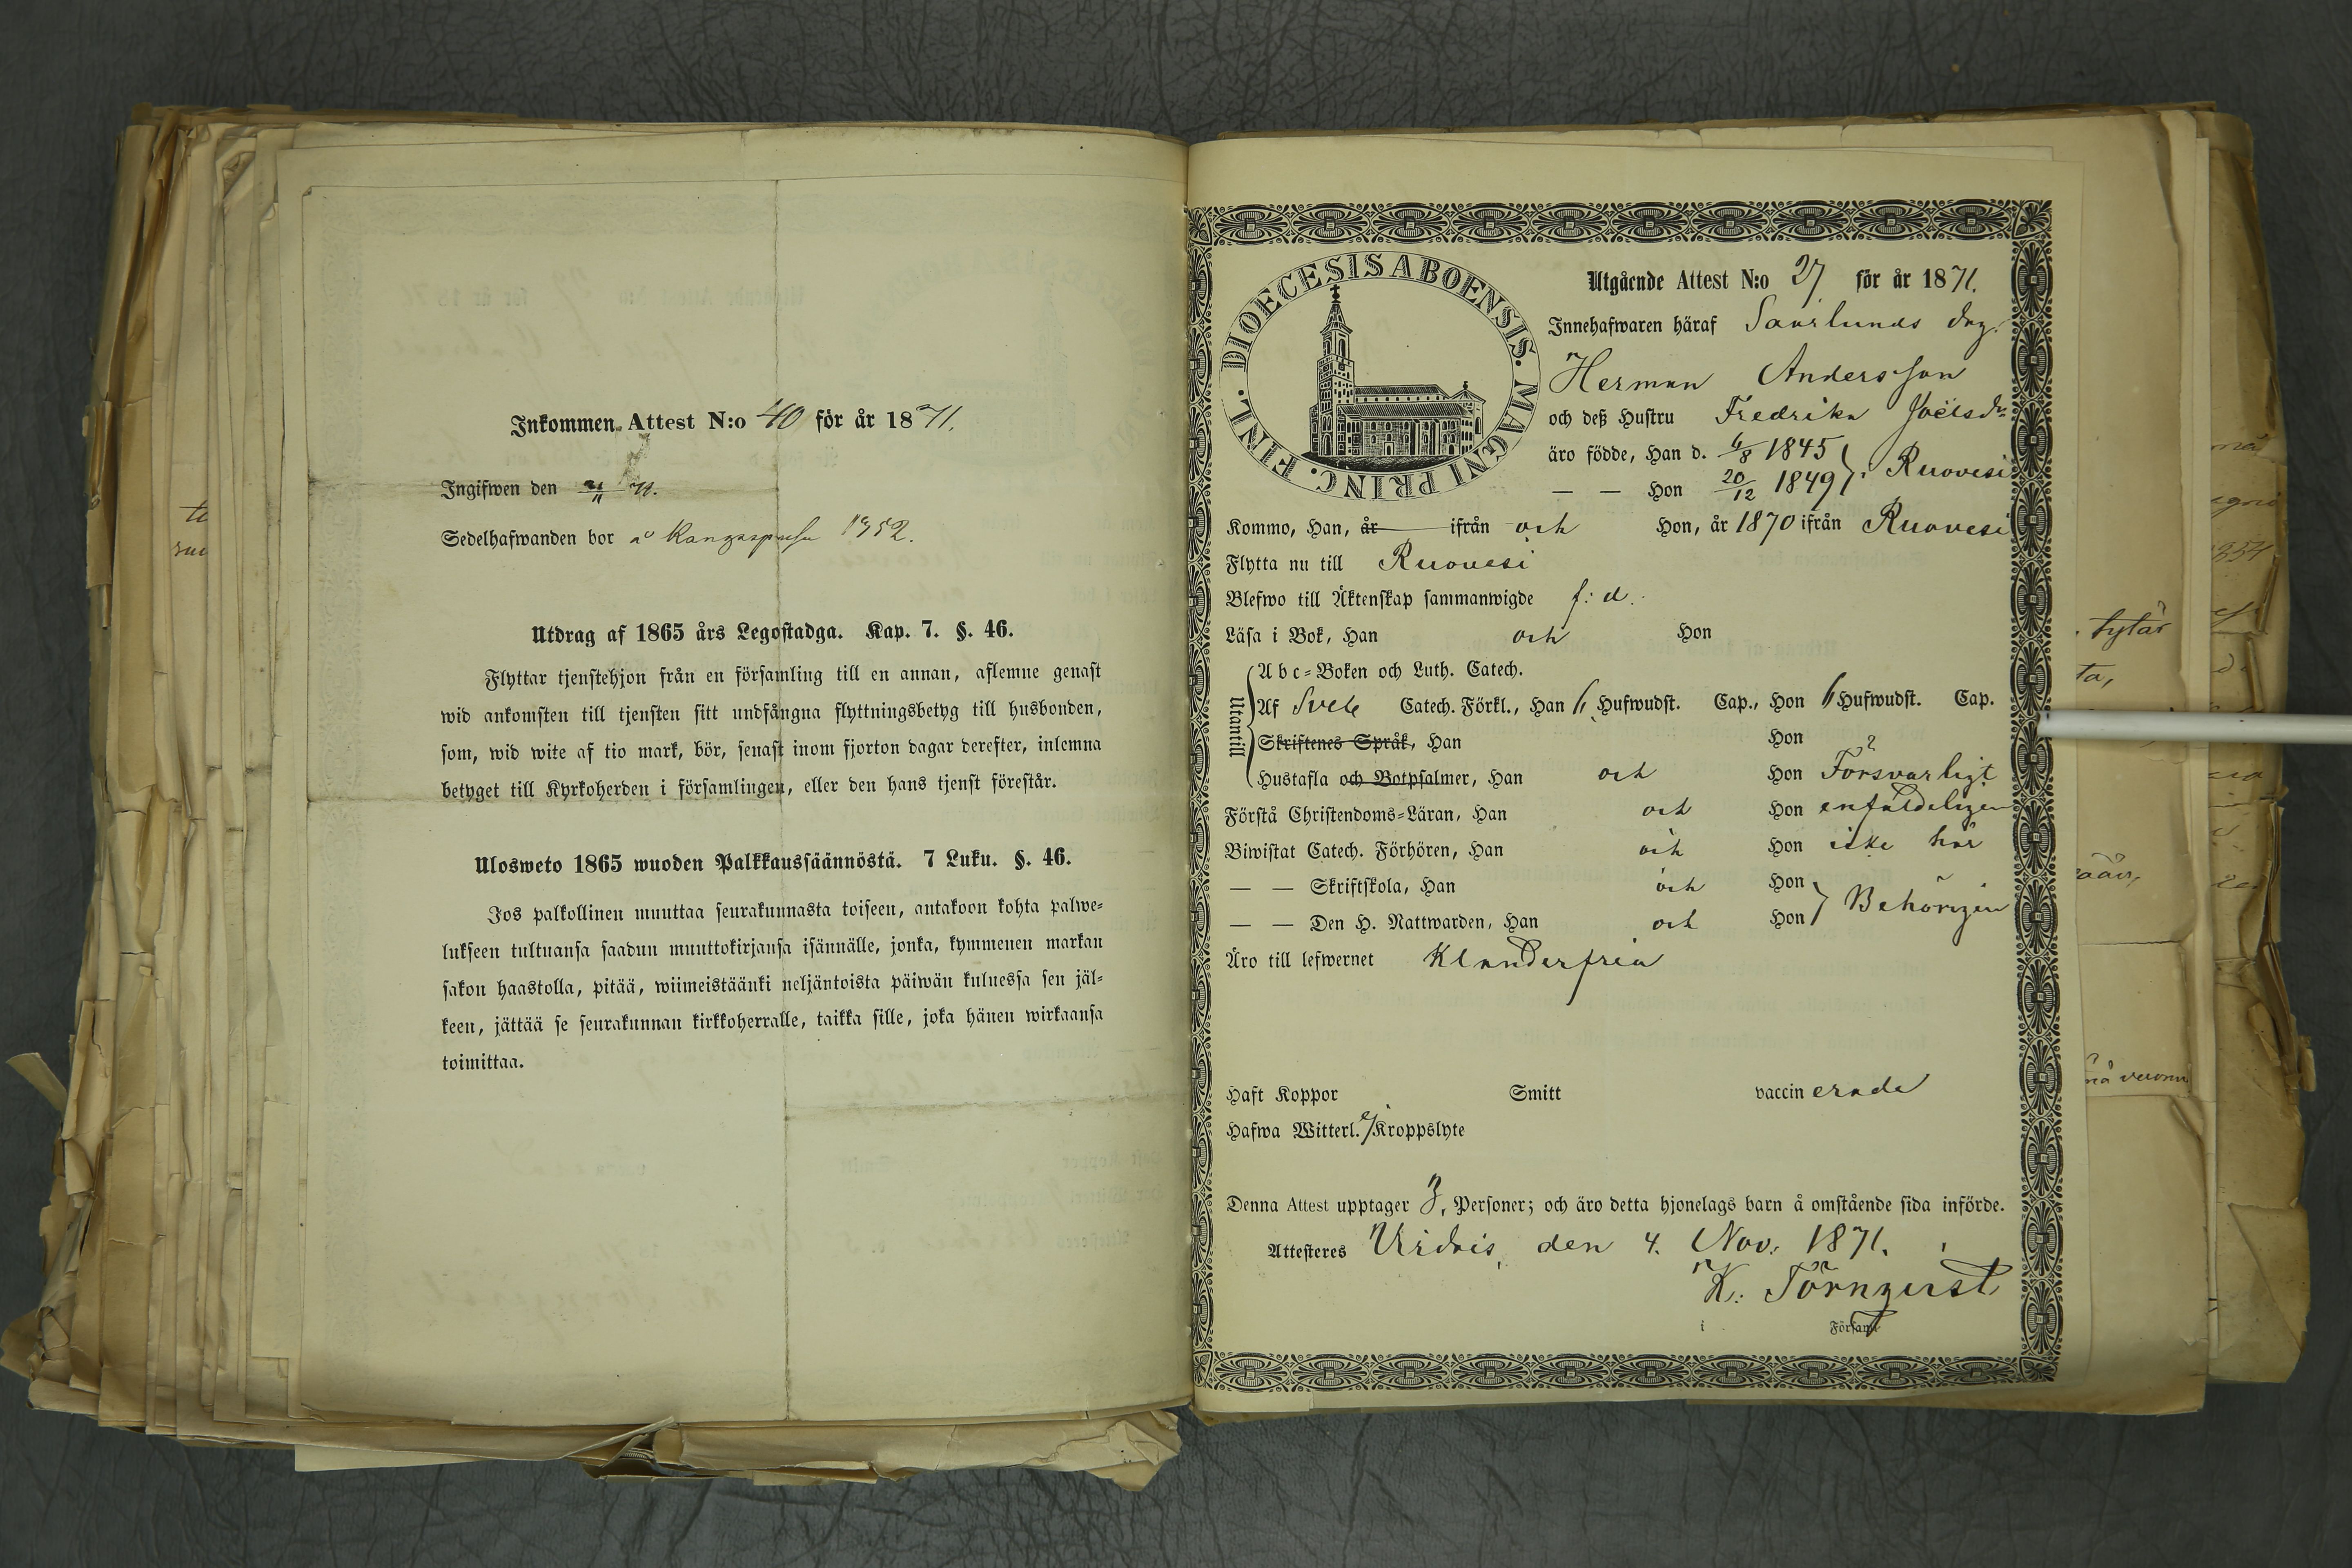 Inkommen Attest N:o 40 för år 1871.
Ingifwen den 21/11 71.
Sedelhafwanden bor å 1352.
Utdrag af 1865 års Legostadga. Kap. 7. §. 46.
Flyttar tjenstehjon från en församling till en annan, aflemne genast
wid ankomsten till tjensten sitt undfångna flyttningsbetyg till husbonden,
som, wid wite af tio mark, bör, senast inom fjorton dagar derefter, inlemna
betyget till Kyrkoherden i församlingen, eller den hans tjenst förestår.
Ulosweto 1865 wuoden Palkkaussäännöstä. 7 Luku. §. 46.
Jos palkollinen muuttaa seurakunnasta toiseen, antakoon kohta palwe-
lukseen tultuansa saadun muuttokirjansa isännälle, jonka, kymmenen markan
sakon haastolla, pitää, wiimeistäänki neljäntoista päiwän kuluessa sen jäl-
keen, jättää se seurakunnan kirkkoherralle, taikka sille, joka hänen wirkaansa
toimittaa.
DIOECESIS ABOENSIS. MAGNI PRINC. FINL.
Utgående Attest N:o 27 för år 1871.
Innehafwaren häraf
Herman Andersson
och deß Hustru Fredrika Joëlsdr
äro födde, Han d. 6/8 1845
— — Hon 20/12 1849 } i Ruovesi
Kommo, Han, år ifrån och Hon, år 1870 ifrån Ruovesi
Flytta nu till Ruovesi
Blefwo till Äktenskap sammanwigde f: d.
Läsa i Bok, Han och Hon
Utantill
Abc-Boken och Luth. Catech.
Af Catech. Förkl., Han 6 Hufwudst. Cap., Hon 6 Hufwudst. Cap.
Skriftenes Språk, Han Hon
Hustafla och Botpsalmer, Han och Hon Försvarligt
Förstå Christendoms-Läran, Han och Hon enfaldeligen
Biwistat Catech. Förhören, Han och Hon icke här
— — Skriftskola, Han och Hon
— — Den H. Nattwarden, Han och Hon } Behörigen
Äro till lefwernet Klanderfria
Haft Koppor Smitt vaccinerade
Hafwa Witterl. ej Kroppslyte
Denna Attest upptager 3. Personer; och äro detta hjonelags barn å omstående sida införde.
Attesteres Virdois, den 4. Nov. 1871.
K. Törnqvist
i Församl.